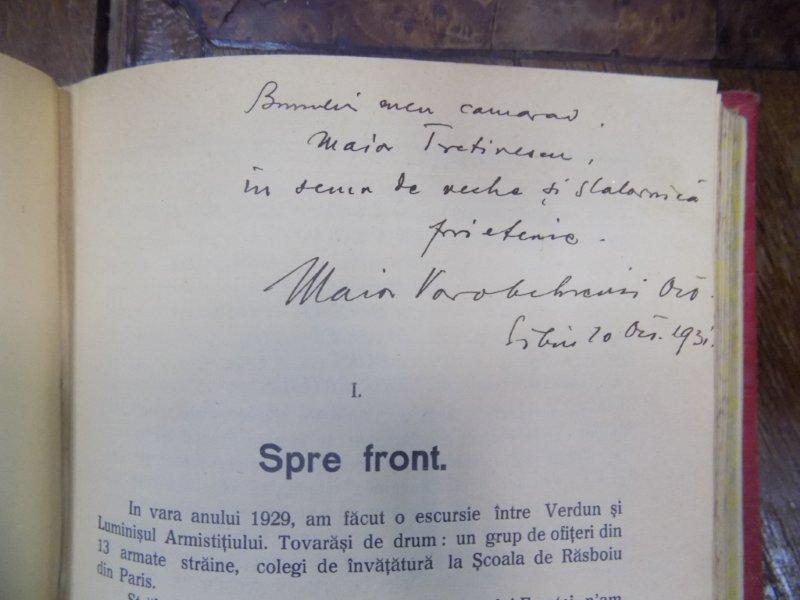 Bunului meu camarad.
Maior Tretinescu,
în semn de veche și statornică
prietenie.
Maior
Sibiu 20 1931.
I.
Spre front.
In vara anului 1929, am făcut o escursie între Verdun și
Luminișul Armistițiului. Tovarăși de drum : un grup de ofițeri din
13 armate străine, colegi de învățătură la Școala de Răsboiu
din Paris.
n'am